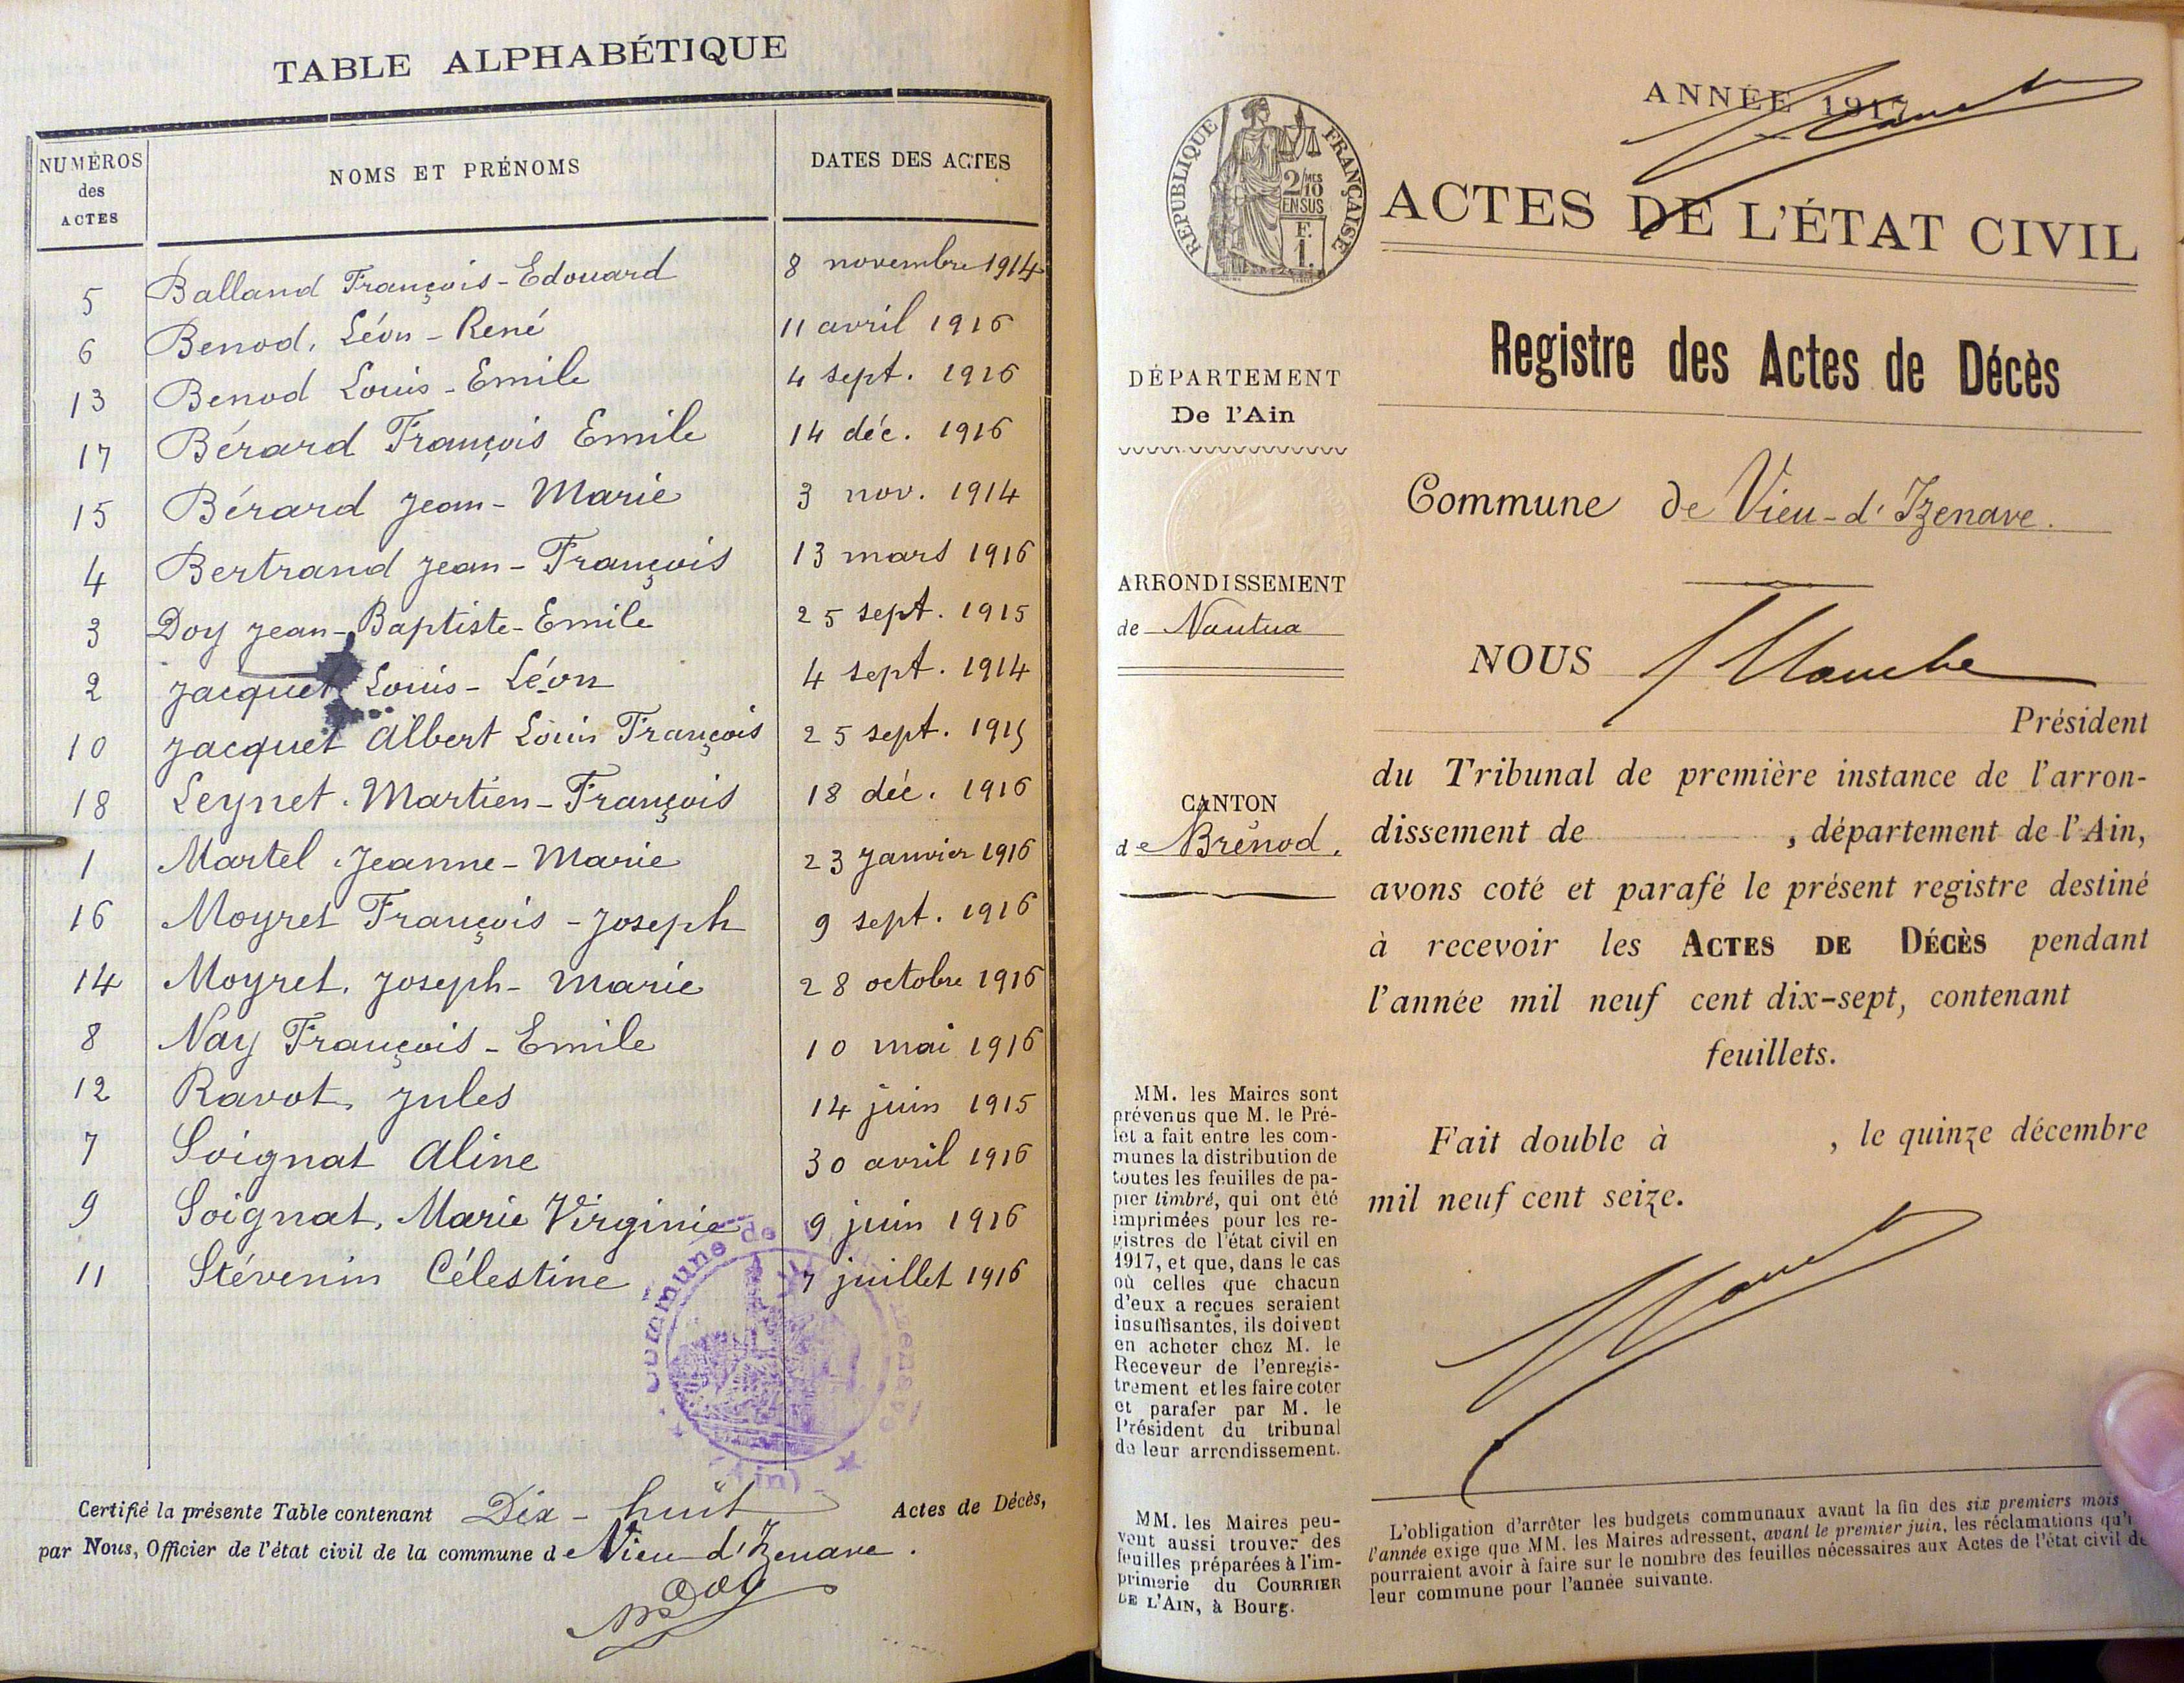 TABLE ALPHABÉTIQUE
NUMÉROS des ACTES NOMS ET PRÉNOMS DATES DES ACTES
5 Balland François-Edouard 8 novembre 1914
6 Benod, Léon-René 11 avril 1916
13 Benod Louis-Emile 4 sept. 1916
17 Bérard François Emile 14 déc. 1916
15 Bérard Jean-Marie 3 nov. 1914
4 Bertrand Jean-François 13 mars 1916
3 Doy Jean-Baptiste-Emile 25 sept. 1915
2 Jacquet Louis-Léon 4 sept. 1914
10 Jacquet Albert Louis François 25 sept. 1915
18 Leynet. Martien-François 18 déc. 1916
1 Martel Jeanne-Marie 23 Janvier 1916
16 Moyret François-Joseph 9 sept. 1916
14 Moyret, Joseph-Marie 28 octobre 1916
8 Nay François-Emile 10 mai 1916
12 Ravot, Jules 14 juin 1915
7 Soignat Aline 30 avril 1916
9 Soignat, Marie Virginie 9 juin 1916
11 Stévenin Célestine 7 juillet 1916
Commune de
(Ain)
Certifié la présente Table contenant Dix-huit Actes de Décès,
par Nous, Officier de l'état civil de la commune de Vieu-d'Izenave.
Doy
ANNÉE 1917
RÉPUBLIQUE FRANÇAISE
2/10 MES
EN SUS
1 F.
ACTES DE L'ÉTAT CIVIL
Registre des Actes de Décès
DÉPARTEMENT
De l'Ain
Commune de Vieu-d'Izenave.
ARRONDISSEMENT
de Nantua
NOUS
Président
du Tribunal de première instance de l'arron-
dissement de , département de l'Ain,
avons coté et parafé le présent registre destiné
à recevoir les ACTES DE DÉCÈS pendant
l'année mil neuf cent dix-sept, contenant
feuillets.
CANTON
de Brénod.
Fait double à , le quinze décembre
mil neuf cent seize.
MM. les Maires sont
prévenus que M. le Pré-
fet a fait entre les com-
munes la distribution de
toutes les feuilles de pa-
pier timbré, qui ont été
imprimées pour les re-
gistres de l'état civil en
1917, et que, dans le cas
où celles que chacun
d'eux a reçues seraient
insuffisantes, ils doivent
en acheter chez M. le
Receveur de l'enregis-
trement et les faire coter
et parafer par M. le
Président du tribunal
de leur arrondissement.
MM. les Maires peu-
vent aussi trouver des
feuilles préparées à l'im-
primerie du COURRIER
DE L'AIN, à Bourg.
L'obligation d'arrêter les budgets communaux avant la fin des six premiers mois
l'année exige que MM. les Maires adressent, avant le premier juin, les réclamations qu'i
pourraient avoir à faire sur le nombre des feuilles nécessaires aux Actes de l'état civil de
leur commune pour l'année suivante.